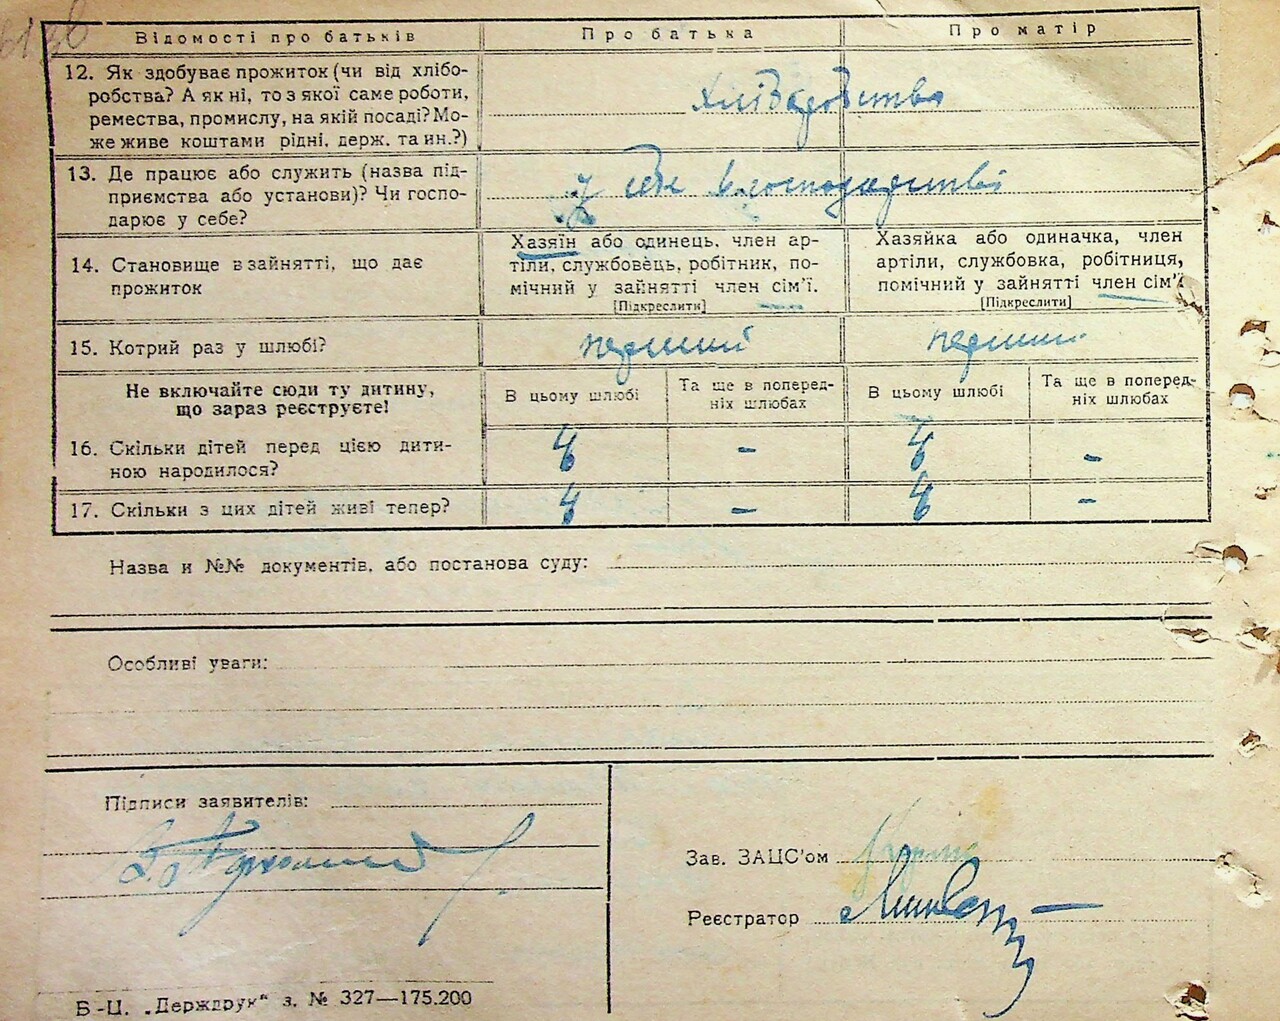 Відомості про батьків
Про батька
Про матір
12. Як здобуває прожиток (чи від хлібо-
робства? А як ні, то з якої саме роботи,
ремества, промислу, на якій посаді? Мо-
же живе коштами рідні, держ. та ин.?)
хліборобство
13. Де працює або служить (назва під-
приємства або установи)? Чи госпо-
дарює у себе?
У себе в господарстві
14. Становище в зайнятті, що дає
прожиток
Хазяїн або одинець, член ар-
тіли, службовець, робітник, по-
мічний у зайнятті член сім'ї.
[Підкреслити]
Хазяйка або одиначка, член
артіли, службовка, робітниця,
помічний у зайнятті член сім'ї
[Підкреслити]
15. Котрий раз у шлюбі?
перший
перший
Не включайте сюди ту дитину,
що зараз реєструєте!
В цьому шлюбі
Та ще в поперед-
ніх шлюбах
В цьому шлюбі
Та ще в поперед-
ніх шлюбах
16. Скільки дітей перед цією дити-
ною народилося?
- -
17. Скільки з цих дітей живі тепер?
- -
Назва и №№ документів, або постанова суду:
Особливі уваги:
Підписи заявителів:
Зав. ЗАЦС'ом
Реєстратор
Б-Ц. „Держдрук“ з. № 327—175.200